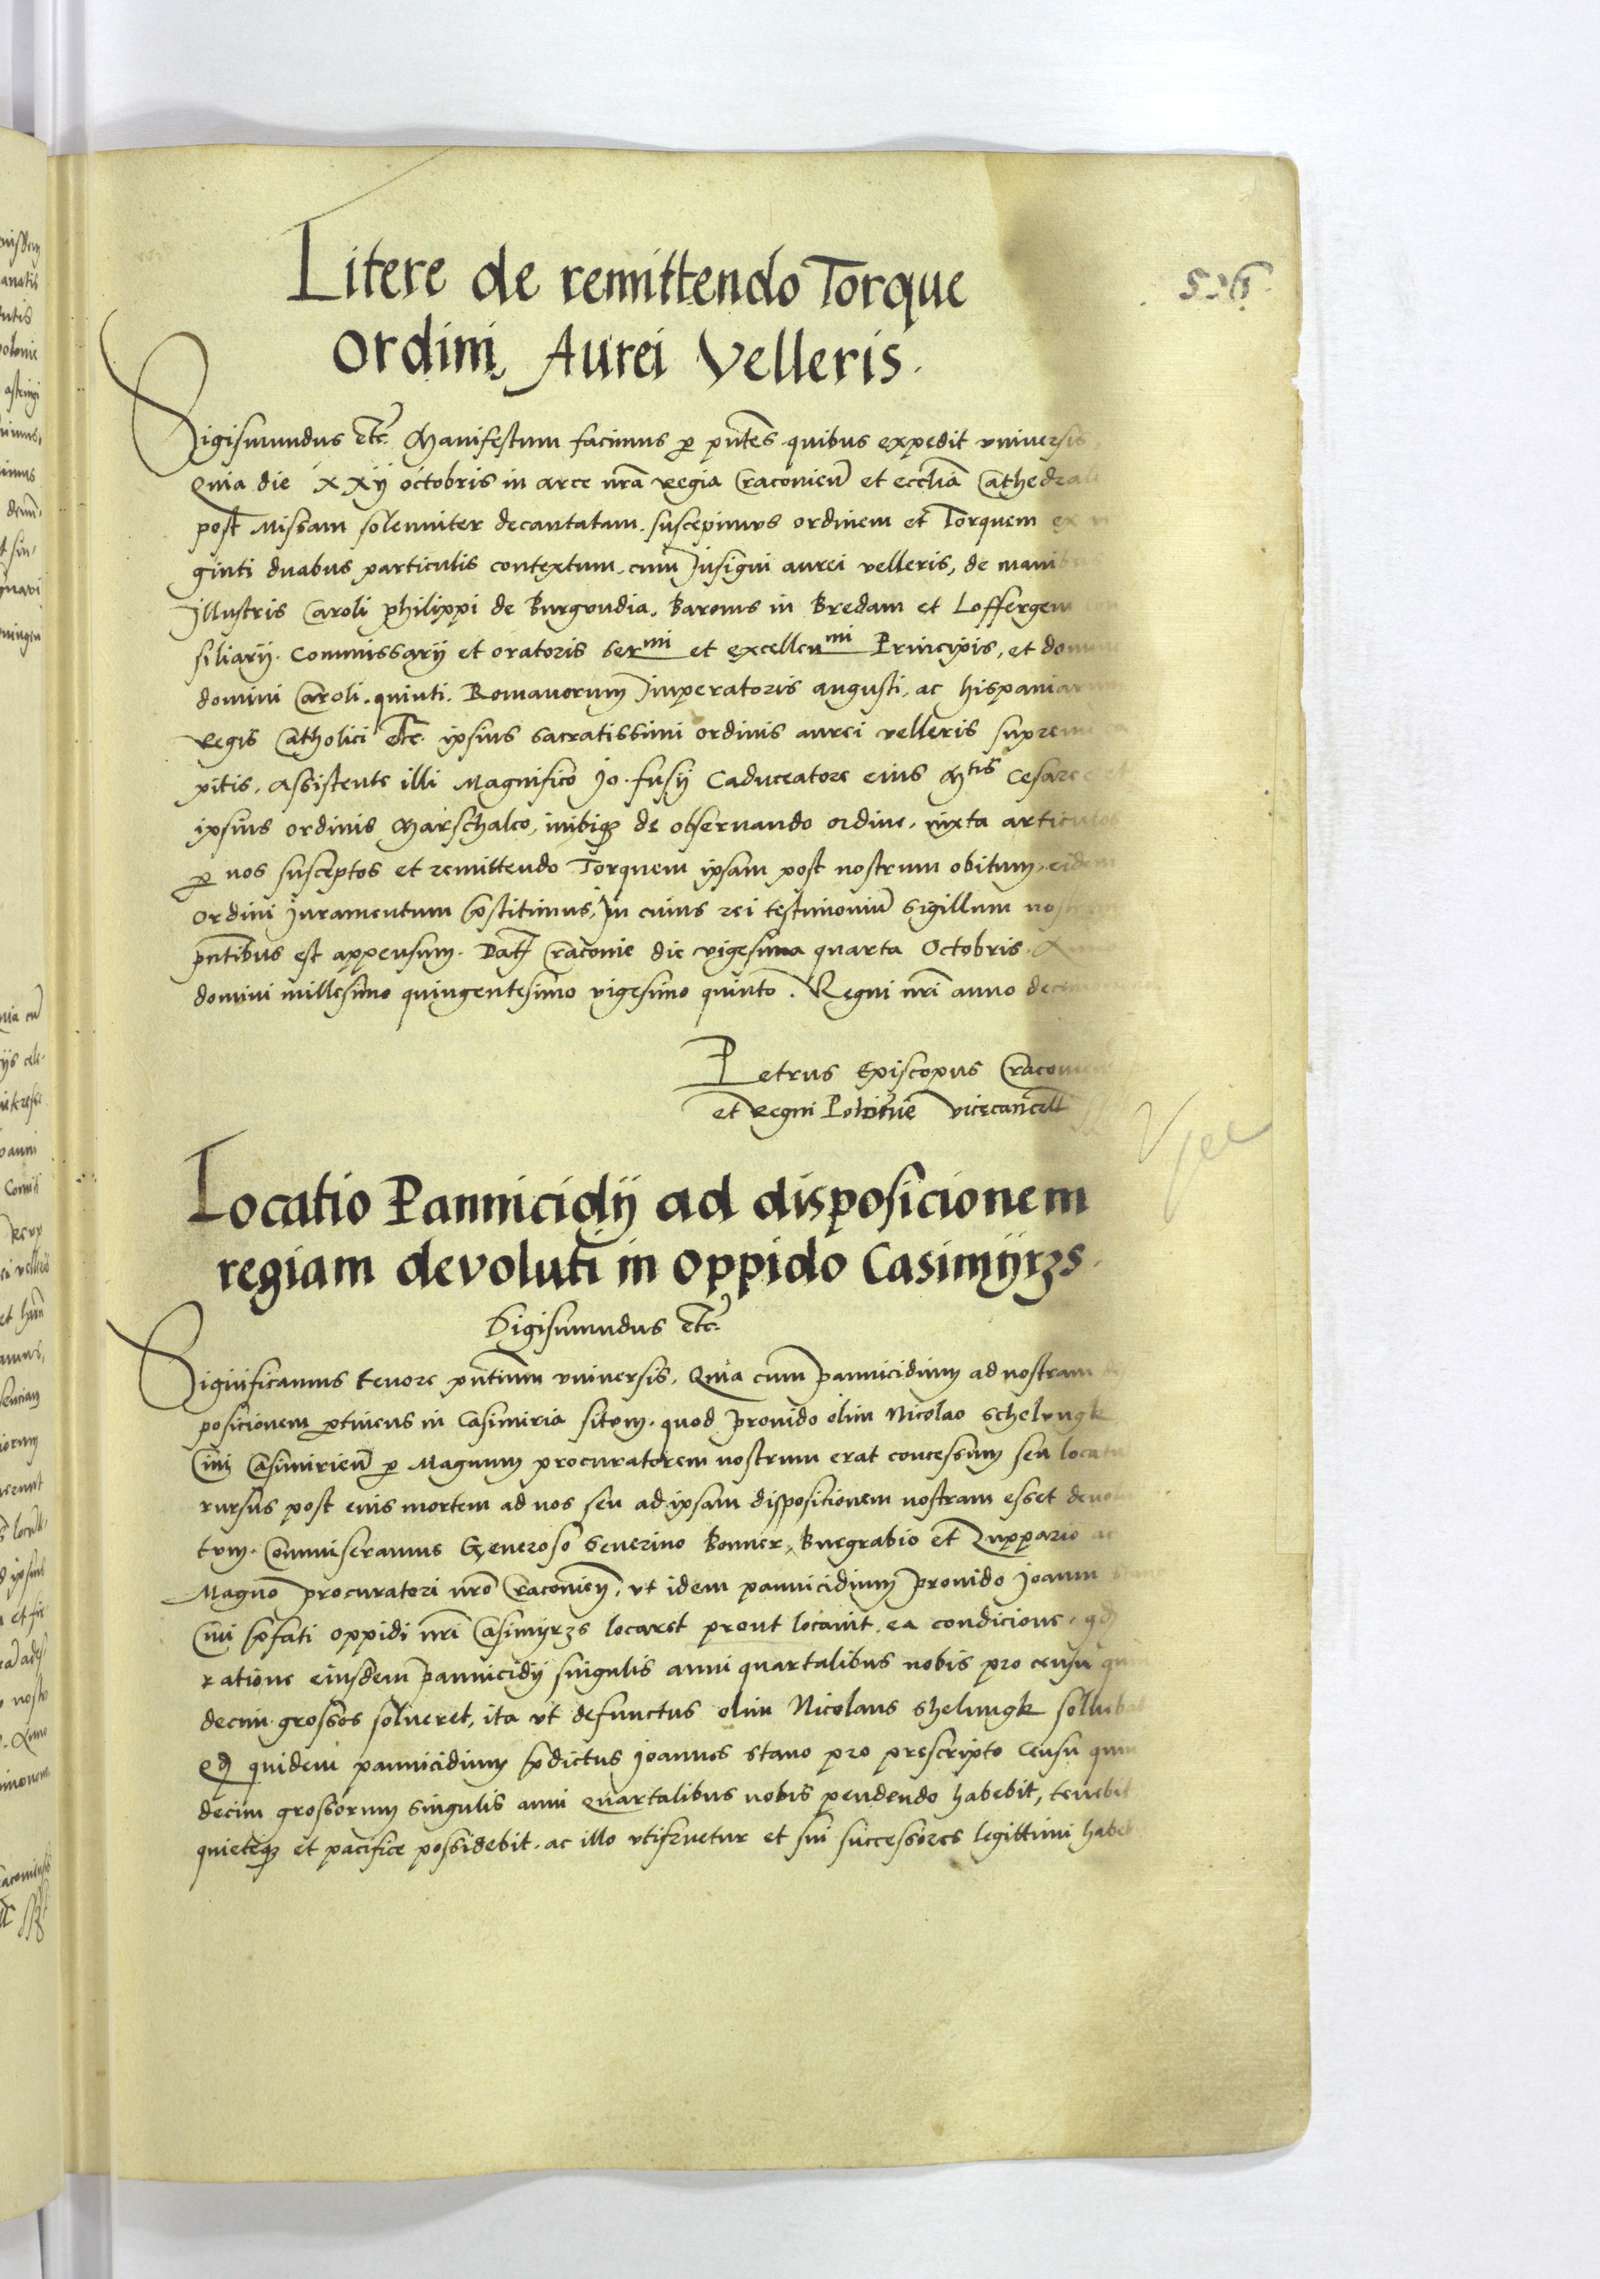 526
Litere de remittendo Torque
Ordini Aurei Velleris.
Sigismundus etc. Manifestum facimus p pntes quibus expedit vniversis,
Quia die XXij octobris in arce nra regia Cracovien et ecclia Cathedrali
post Missam solemniter decantatam. suscepimus ordinem et Torquem ex vi
ginti duabus particulis contextum. cum Insigni aurei velleris, de manibus
Illustris Caroli philippi de Burgundia. Baronis in Bredam et Loffergem con
siliarij. Commissarij et oratoris Sermi et excellenmi Principis, et domini
domini Caroli. quinti. Romanorum Imperatoris augusti, ac hispaniarum
Regis Catholici etc. ipsius sacratissimi ordinis aurei velleris supremi ca
pitis, Assistente illi Magnifico Jo. fusij Caduceatore eius Mtis Cesaree et
ipsius ordinis Marschalco, inibiq de observando ordine, iuxta articulos
p nos susceptos et remittendo Torquem ipsam post nostrum obitum, eidem
Ordini Juramentum pstitimus, In cuius rei testimonium Sigillum nostrum
pntibus est appensum. Dat Cracovie die vigesima quarta Octobris.
domini millesimo quingentesimo vigesimo quinto. Regni nri anno
Petrus Episcopus
et Regni Polonie vicecancell
Locatio Pannicidij ad disposicionem
regiam devoluti in Oppido Casimijrzs.
Sigismundus etc.
Significamus tenore pntium vniversis, Quia cum pannicidium ad nostram dis
posicionem ptinens in Casimiria situm. quod provido olim Nicolao Schelungk
Civi Casimirien p Magnum procuratorem nostrum erat concessum seu
rursus post eius mortem ad nos seu ad ipsam dispositionem nostram esset devolu
tum. Commiseramus Generoso Severino Bonner, Burgrabio et Zuppario ac
Magno procuratori nro Cracovien, vt idem pannicidium provido Joanni
Civi pfati oppidi nri Casimyrzs locaret prout locavit. ea condicione, qd
ratione eiusdem pannicidij singulis anni quartalibus nobis pro censu quin
decim grossos solveret, ita vt defunctus olim Nicolaus Shelungk
Qd quidem pannicidium pdictus Joannes Stano pro prescripto Censu quin
decim grossorum singulis anni quartalibus nobis pendendo habebit, tenebit
quieteq et pacifice possidebit. ac illo vtifruetur et sui successores legittimi